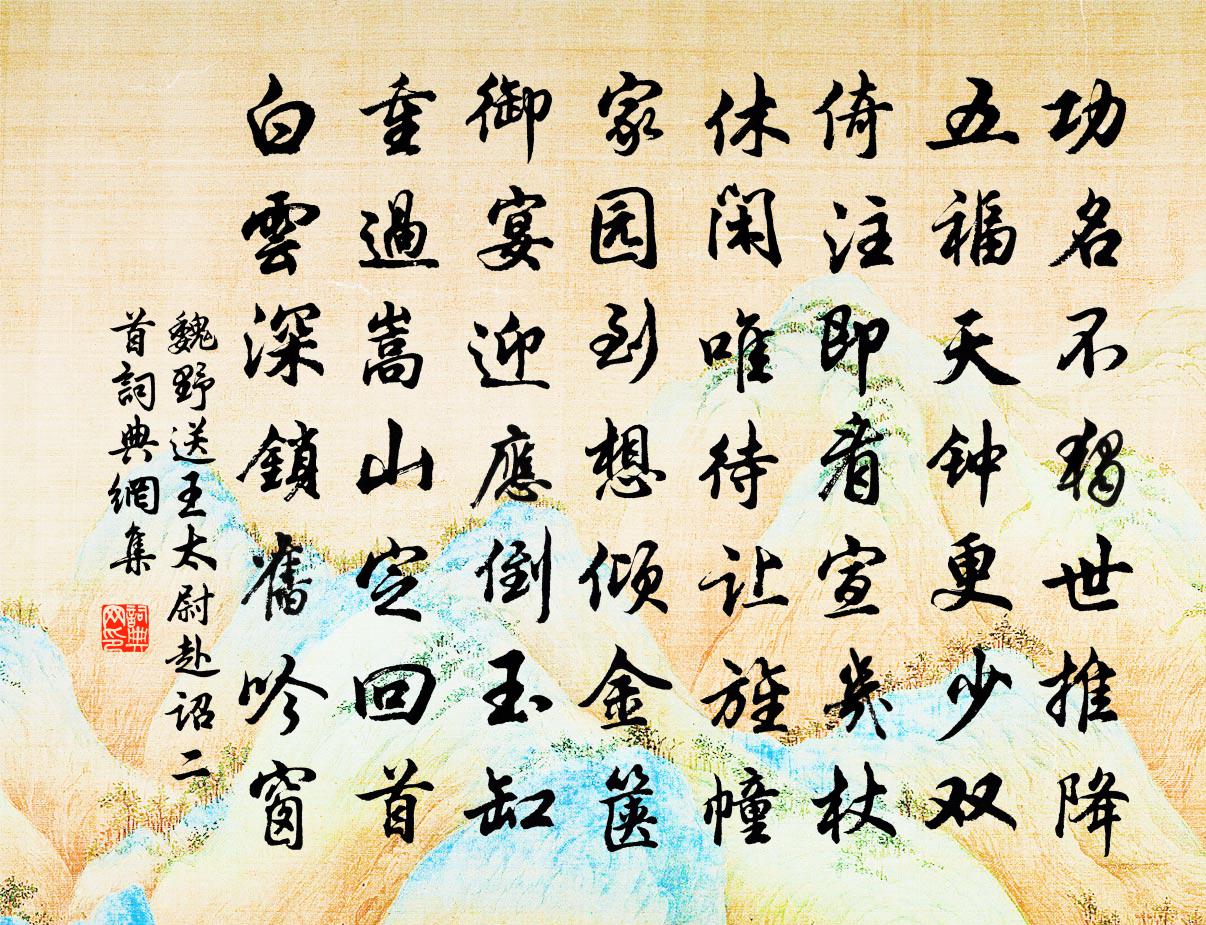 功名不独世推降
五福天钟更少双
倚注即看宣几杖
休闲唯待让旌幢
家园到想倾金箧
御宴迎应倒玉缸
重過嵩山定回首
白雲深鎖舊吟窗
魏野送王太尉赴诏二
首詞典網集
詞典
网印